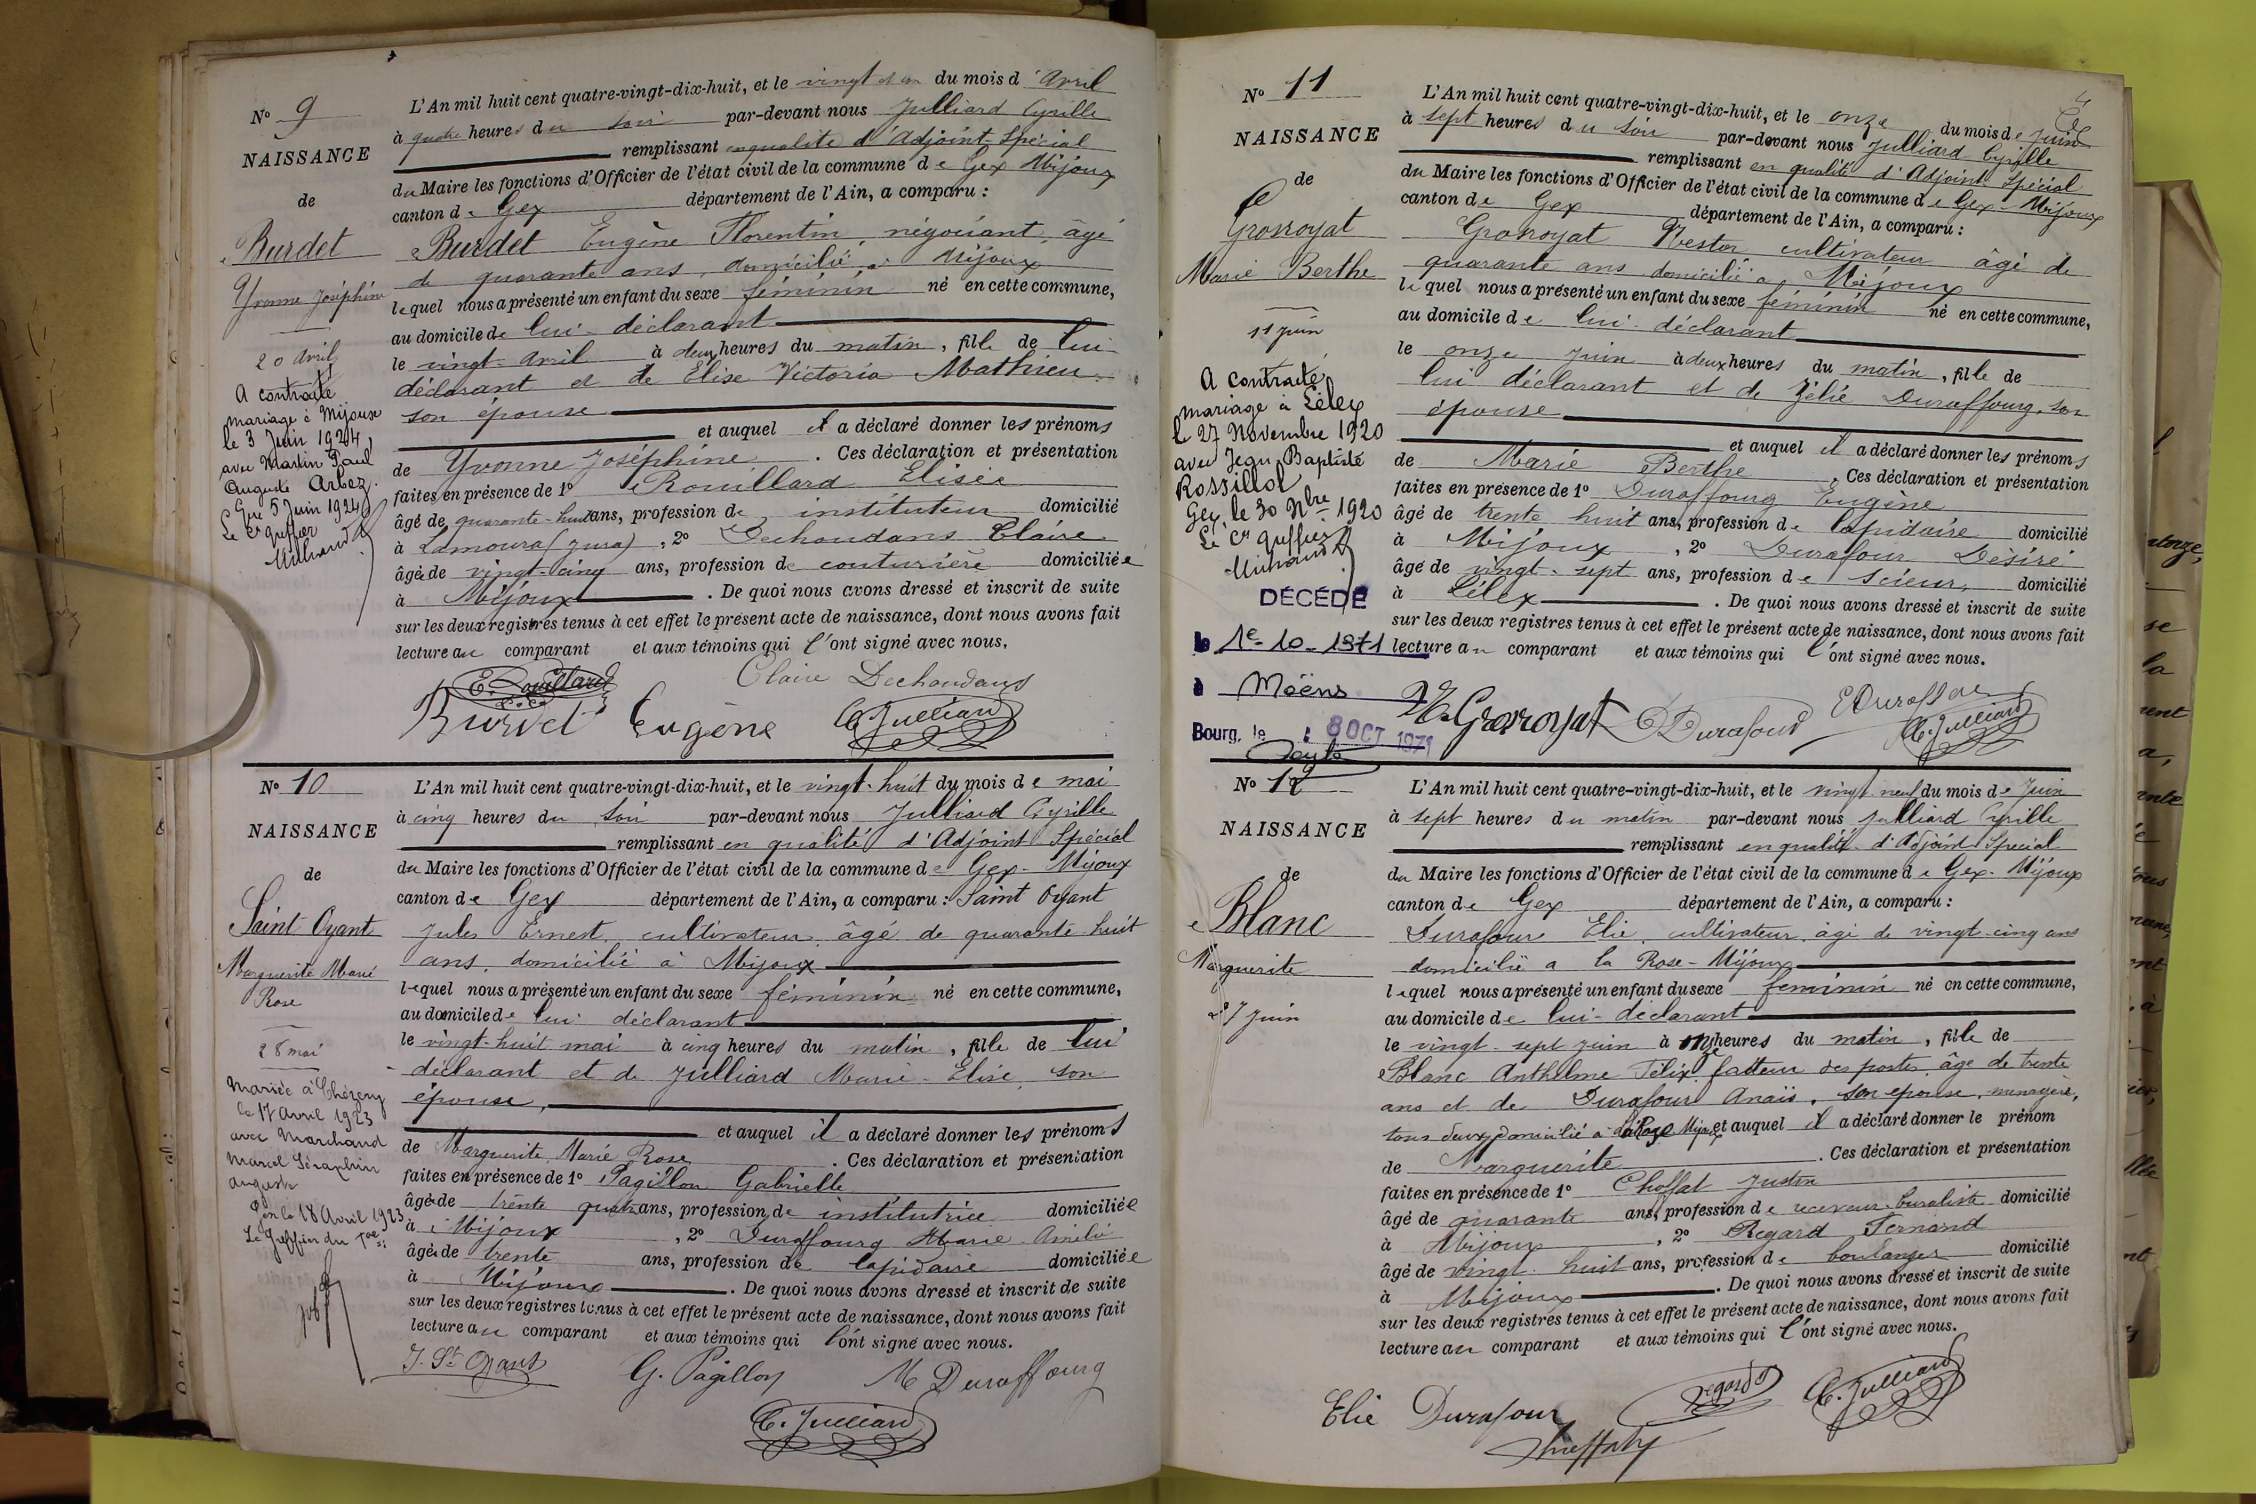 N° 9
NAISSANCE
de
Burdet
Yvonne Joséphine
20 avril
A contracté
mariage à Mijoux
le 3 Juin 1924,
avec Martin Paul
Auguste Arbez.
Gex 5 Juin 1924
Le Cis greffier
L'An mil huit cent quatre-vingt-dix-huit, et le vingt et un du mois d'Avril
à quatre heures du soir par-devant nous Julliard Cyrille
remplissant en qualité d'Adjoint Spécial
du Maire les fonctions d'Officier de l'état civil de la commune de Gex Mijoux
canton de Gex département de l'Ain, a comparu :
Burdet Eugène Florentin, négociant, âgé
de quarante ans, domicilié à Mijoux
lequel nous a présenté un enfant du sexe féminin né en cette commune,
au domicile de lui-déclarant
le vingt-avril à deux heures du matin, fille de lui
déclarant et de Elise Victoria Mathieu
son épouse
et auquel il a déclaré donner les prénoms
de Yvonne Joséphine. Ces déclaration et présentation
faites en présence de 1° Rouillard Elisée
âgé de quarante-huit ans, profession de instituteur domicilié
à Lamoura (Jura), 2° Dechoudans Claire
âgée de vingt-cinq ans, profession de couturière domiciliée
à Mijoux. De quoi nous avons dressé et inscrit de suite
sur les deux registres tenus à cet effet le présent acte de naissance, dont nous avons fait
lecture au comparant et aux témoins qui l'ont signé avec nous.
E. Rouillard Claire Dechoudans
Burdet Eugène C. Julliard
N° 10
NAISSANCE
de
Saint Oyant
Marguerite Marie
Rose
28 mai
Mariée à Chézery
le 17 Avril 1923
avec Marchand
Marcel Séraphin
Auguste
Gex le 18 Avril 1923
Le Greffier du
L'An mil huit cent quatre-vingt-dix-huit, et le vingt-huit du mois de mai
à cinq heures du soir par-devant nous Julliard Cyrille
remplissant en qualité d'Adjoint Spécial
du Maire les fonctions d'Officier de l'état civil de la commune de Gex-Mijoux
canton de Gex département de l'Ain, a comparu : Saint Oyant
Jules Ernest, cultivateur, âgé de quarante huit
ans, domicilié à Mijoux
lequel nous a présenté un enfant du sexe féminin né en cette commune,
au domicile de lui déclarant
le vingt-huit mai à cinq heures du matin, fille de lui
déclarant et de Julliard Marie-Elise, son
épouse,
et auquel il a déclaré donner les prénoms
de Marguerite Marie Rose. Ces déclaration et présentation
faites en présence de 1° Pagillon Gabrielle
âgée de trente quatre ans, profession de institutrice domiciliée
à Mijoux, 2° Duraffourg Marie Amélie
âgée de trente ans, profession de lapidaire domiciliée
à Mijoux. De quoi nous avons dressé et inscrit de suite
sur les deux registres tenus à cet effet le présent acte de naissance, dont nous avons fait
lecture au comparant et aux témoins qui l'ont signé avec nous.
J. St Oyant G. Pagillon M Duraffourg
C. Julliard
N° 11
NAISSANCE
de
Grosroyat
Marie Berthe
11 juin
A contracté
mariage à Lélex
le 27 Novembre 1920
avec Jean Baptiste
Rossillol
Gex, le 30 Nbre 1920
Le Cis Greffier
DÉCÉDÉ
le 1e-10-1971
à Moëns
Bourg, le 8 OCT 1971
L'An mil huit cent quatre-vingt-dix-huit, et le onze du mois de Juin
à sept heures du soir par-devant nous Julliard Cyrille
remplissant en qualité d'Adjoint Spécial
du Maire les fonctions d'Officier de l'état civil de la commune de Gex-Mijoux
canton de Gex département de l'Ain, a comparu :
Grosroyat Nestor cultivateur âgé de
quarante ans domicilié à Mijoux
lequel nous a présenté un enfant du sexe féminin né en cette commune,
au domicile de lui-déclarant
le onze juin à deux heures du matin, fille de
lui déclarant et de Zélie Duraffourg, son
épouse
et auquel il a déclaré donner les prénoms
de Marie Berthe. Ces déclaration et présentation
faites en présence de 1° Duraffourg Eugène
âgé de trente huit ans, profession de lapidaire domicilié
à Mijoux, 2° Durafour Désiré
âgé de vingt-sept ans, profession de scieur, domicilié
à Lélex. De quoi nous avons dressé et inscrit de suite
sur les deux registres tenus à cet effet le présent acte de naissance, dont nous avons fait
lecture au comparant et aux témoins qui l'ont signé avec nous.
N. Grosroyat D Durafour E Duraffour
C. Julliard
N° 12
NAISSANCE
de
Blanc
Marguerite
27 Juin
L'An mil huit cent quatre-vingt-dix-huit, et le vingt-neuf du mois de Juin
à sept heures du matin par-devant nous Julliard Cyrille
remplissant en qualité d'Adjoint Spécial
du Maire les fonctions d'Officier de l'état civil de la commune de Gex-Mijoux
canton de Gex département de l'Ain, a comparu :
Durafour Elie, cultivateur, âgé de vingt-cinq ans
domicilié a la Rose-Mijoux
lequel nous a présenté un enfant du sexe féminin né en cette commune,
au domicile de lui-déclarant
le vingt-sept juin à onze heures du matin, fille de
Blanc Anthelme Félix, facteur des postes, âgé de trente
ans et de Durafour Anaïs, son épouse, ménagère,
tous deux domicilié à la Rose Mijoux et auquel il a déclaré donner le prénom
de Marguerite. Ces déclaration et présentation
faites en présence de 1° Choffat Justin
âgé de quarante ans, profession de receveur buraliste domicilié
à Mijoux, 2° Regard Fernand
âgé de vingt-huit ans, profession de boulanger domicilié
à Mijoux. De quoi nous avons dressé et inscrit de suite
sur les deux registres tenus à cet effet le présent acte de naissance, dont nous avons fait
lecture au comparant et aux témoins qui l'ont signé avec nous.
Elie Durafour Regard C. Julliard